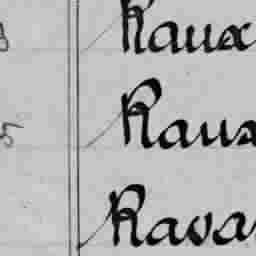 Raux
Raux
Rava